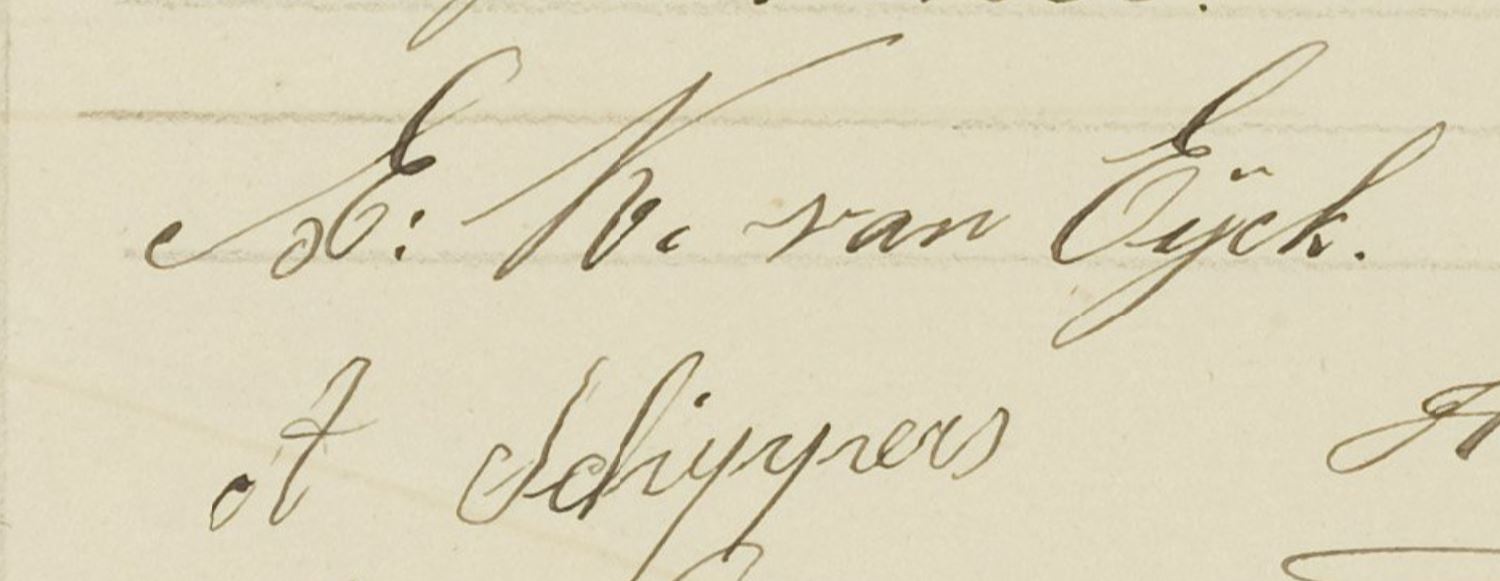 E: N. van Eÿck.
A Schippers